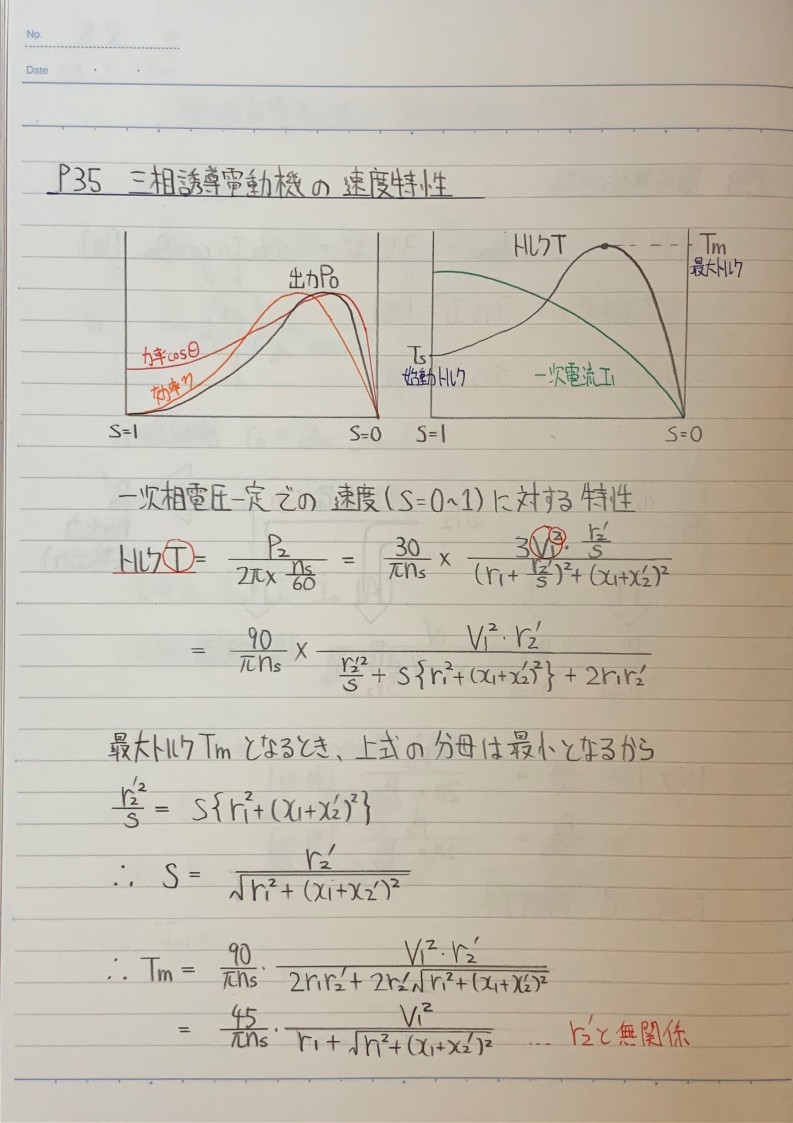 No.
Date
P35 三相誘導電動機の速度特性
出力P₀
力率cosθ
効率η
S=1
S=0
トルクT
Tm
最大トルク
Ts
始動トルク
一次電流I₁
S=1
S=0
一次相電圧一定での速度(S=0~1)に対する特性
トルクT = P₂/(2π×ns/60) = 30/(πns) × (3V₁²・r₂′/S)/((r₁+r₂′/S)²+(x₁+x₂′)²)
= 90/(πns) × (V₁²・r₂′)/(r₂′²/S + S{r₁²+(x₁+x₂′)²} + 2r₁r₂′)
最大トルクTmとなるとき、上式の分母は最小となるから
r₂′²/S = S{r₁²+(x₁+x₂′)²}
∴ S = r₂′/√(r₁²+(x₁+x₂′)²)
∴ Tm = 90/(πns)・(V₁²・r₂′)/(2r₁r₂′+2r₂′√(r₁²+(x₁+x₂′)²))
= 45/(πns)・V₁²/(r₁+√(r₁²+(x₁+x₂′)²)) … r₂′と無関係